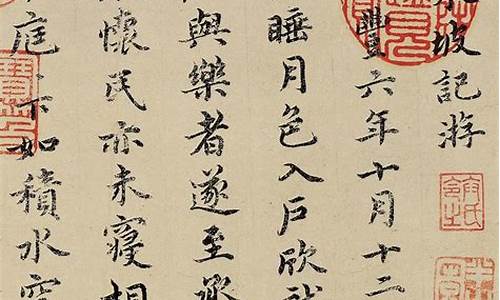 坡記游
豐六年十月十二
睡月色入戶欣
與樂者遂至承
懷民亦未寢相
庭下如積水空